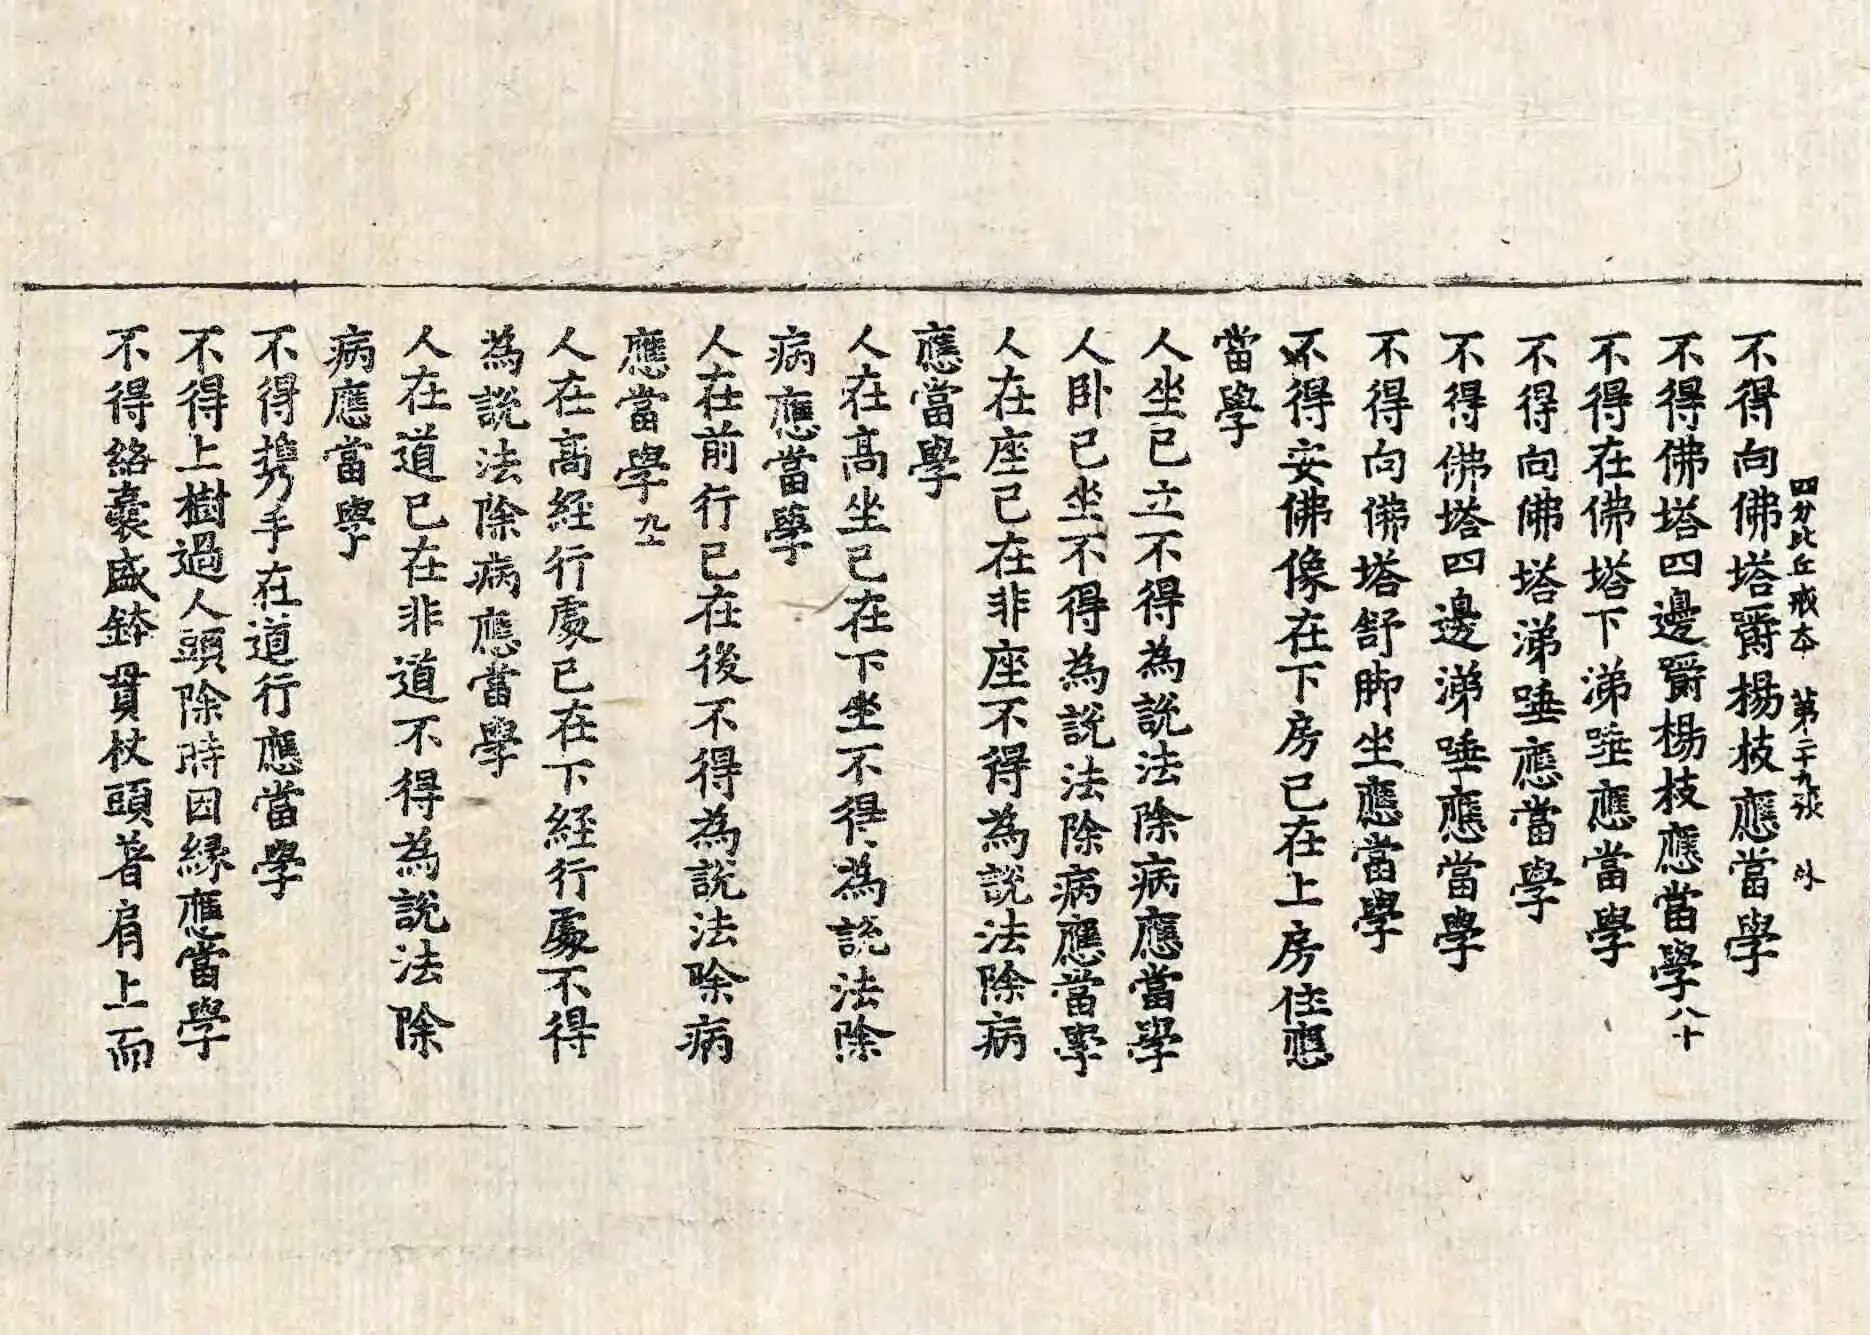 四分比丘戒本 第二十九張 外
不得向佛塔嚼楊枝應當學
不得佛塔四邊嚼楊枝應當學八十
不得在佛塔下涕唾應當學
不得向佛塔涕唾應當學
不得佛塔四邊涕唾應當學
不得向佛塔舒脚坐應當學
不得安佛像在下房己在上房住應
當學
人坐己立不得為說法除病應當學
人卧己坐不得為說法除病應當學
人在座己在非座不得為說法除病
應當學
人在高坐己在下坐不得為說法除
病應當學
人在前行己在後不得為說法除病
應當學九十
人在高經行處己在下經行處不得
為說法除病應當學
人在道己在非道不得為說法除
病應當學
不得携手在道行應當學
不得上樹過人頭除時因緣應當學
不得絡囊盛鉢貫杖頭著肩上而